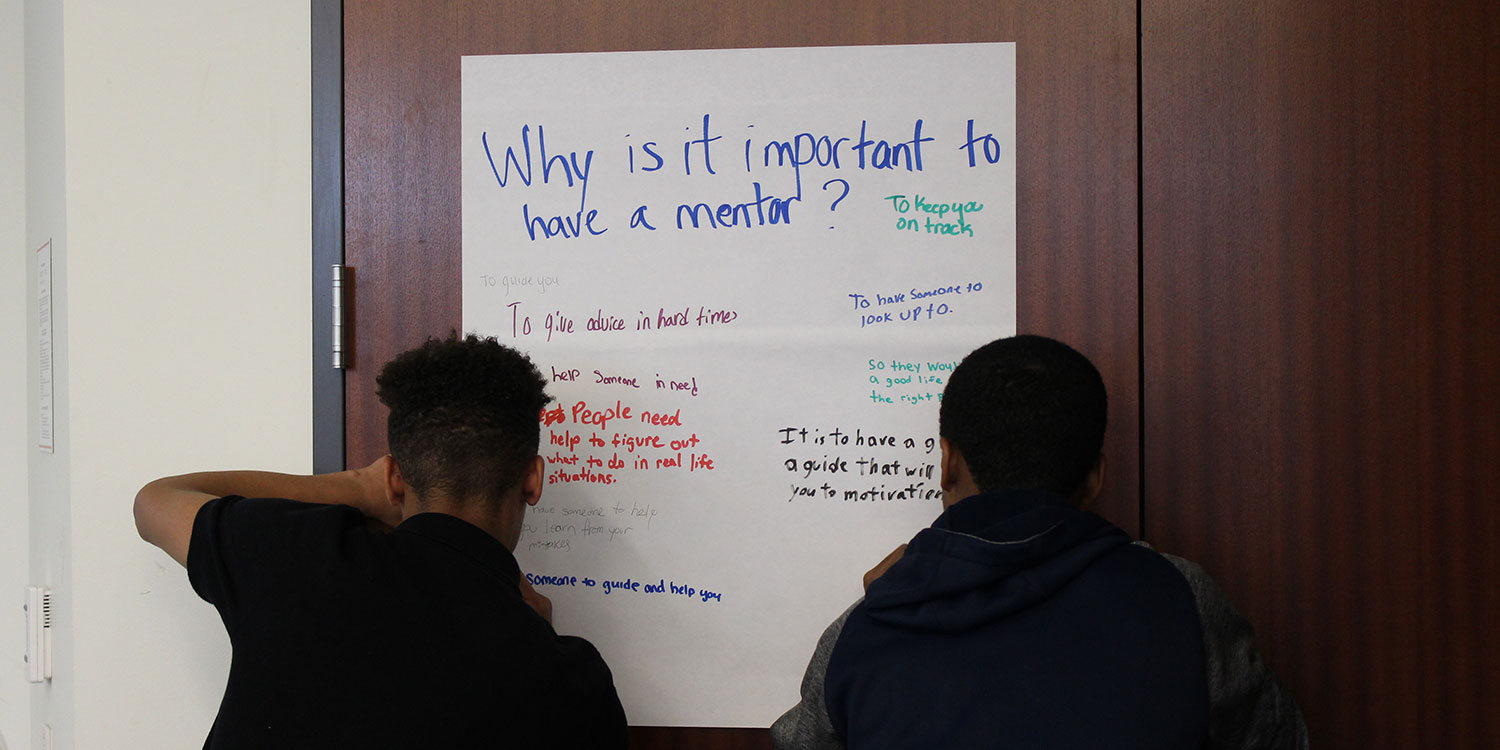 Why is it important to
have a mentor?
To keep you
on track
To guide you
To give advice in hard times
To have someone to
look up to.
help someone in need
People need
help to figure out
what to do in real life
situations.
So they
a good life
the right
It is to have a
a guide that will
you to motivation
have someone to help
you learn from your
mistakes
someone to guide and help you